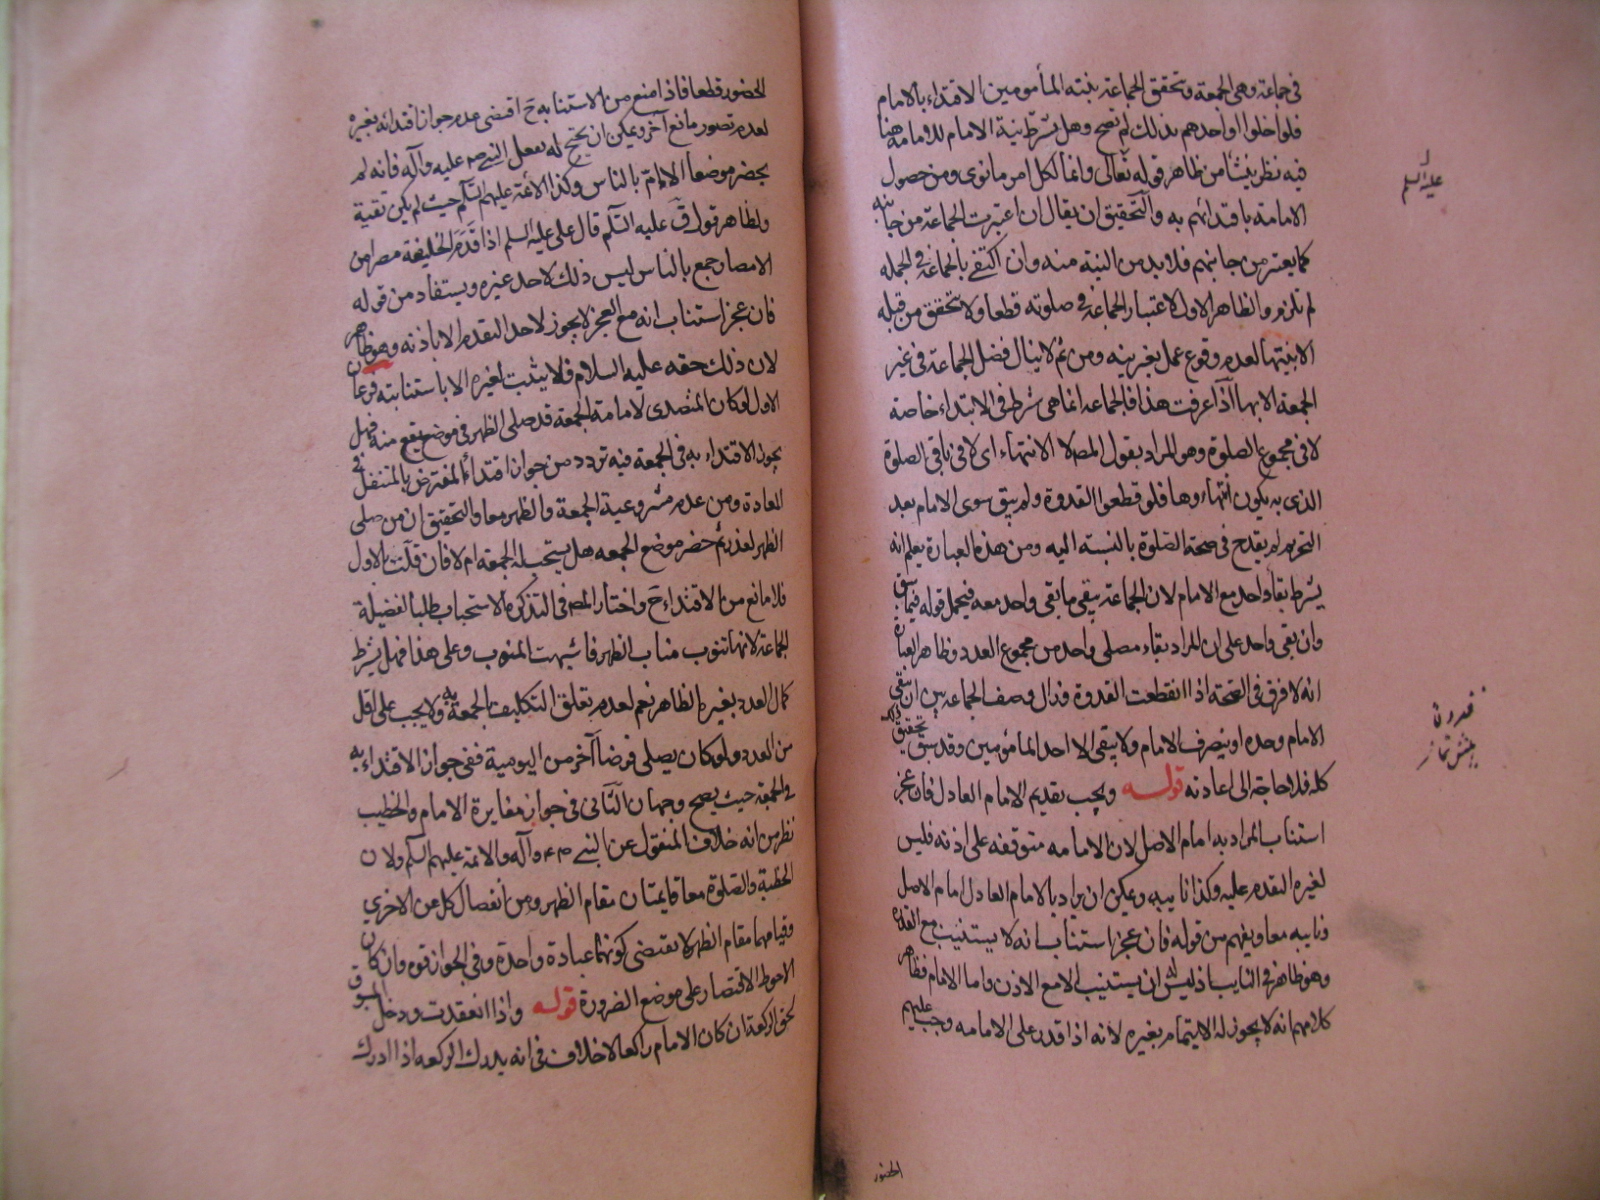 فى جماعة وهى الجمعة وتحقق الجماعة بنية المأمومين الاقتداء بالامام
فلو اخلوا او احدهم بذلك لم تصح وهل يشترط نية الامام للامامة هنا
فيه نظر ينشأ من ظاهر قوله تعالى وانما لكل امرء ما نوى ومن حصول
الامامة باقتدائهم به والتحقيق ان يقال ان اعتبرت الجماعة من جانبه
كما يعتبر من جانبهم فلابد من النية منه وان اكتفى بالجماعة فى الجمله
لم تلزم والظاهر الاول لاعتبار الجماعة فى صلوته قطعا ولا تتحقق من قبله
الا بنيتها لعدم وقوع عمل بغير نيه ومن ثم لا ينال فضل الجماعة فى غير
الجمعة الا بها اذا عرفت هذا فالجماعة انما هى شرط فى الابتداء خاصة
لا فى مجموع الصلوة وهو المراد بقول المص لا الانتهاء اى لا فى باقى الصلوة
الذى به يكون انتهاءوها فلو قطعوا القدوة ولم يبق سوى الامام بعد
التحريم لم يقدح فى صحة الصلوة بالنسبة اليه ومن هذه العبارة يعلم انه
يشترط بقاء واحد مع الامام لان الجماعة يبقى ما بقى واحد معه فيحمل قوله فيما سبق
وان بقى واحد على ان المراد بقاء مصلى واحد من مجموع العدد وظاهر العبارة
انه لا فرق فى الصحة اذا انقطعت القدوة وزال وصف الجماعة بين ان يبقى
الامام وحده او ينصرف الامام ولا يبقى الا احد المأمومين وقد سبق تحقيق ذلك
كله فلا حاجة الى اعادته قوله ويجب تقديم الامام العادل فان عجز
استناب المراد به امام الاصل لان الامامه متوقفه على اذنه فليس
لغيره التقدم عليه وكذا نايبه ويمكن ان يراد بالامام العادل امام الاصل
ونايبه معا ويفهم من قوله فان عجز استناب انه لا يستنيب مع القدرة
وهو ظاهر فى النايب اذ ليس له ان يستنيب الا مع الاذن واما الامام فظاهر
كلامهم انه لا يجوز له الايتمام بغيره لانه اذا قدر على الامامه وجب عليهم
عليه السلم
الحضور
الحضور قطعا فاذا منع من الاستنابه ح اقتضى عدم جواز اقتدائه بغيره
لعدم تصور مانع آخر ويمكن ان يحتج له بفعل النبى ص عليه وآله فانه لم
يحضر موضعا الا ام بالناس وكذا الائمة عليهم السلم حيث لم يكن تقية
ولظاهر قول ق عليه السلم قال على عليه السلم اذا قدم الخليفة مصرا من
الامصار جمع بالناس ليس ذلك لاحد غيره ويستفاد من قوله
فان عجز استناب انه مع العجز لا يجوز لاحد التقدم الا باذنه وهو ظاهر
لان ذلك حقه عليه السلام فلا يثبت لغيره الا باستنابته فرعان
الاول لو كان المتصدى لامامة الجمعة قد صلى الظهر فى موضع يقع منه فهل
يجوز الاقتداء به فى الجمعة فيه تردد من جواز اقتداء المفترض بالمتنفل فى
المعادة ومن عدم مشروعية الجمعة والظهر معا والتحقيق ان من صلى
الظهر لعذر ثم حضر موضع الجمعه هل يستحب له الجمعة ام لا فان قلت بالاول
فلا مانع من الاقتداء ح واختار المص فى التذكرة الاستحباب طلبا لفضيلة
الجماعة لانها تنوب مناب الظهر فاشبهت المنوب وعلى هذا فهل يشترط
كمال العدد بغيره الظاهر نعم لعدم تعلق التكليف بالجمعة به ولا يجب على اقل
من العدد ولو كان يصلى فرضا آخر من اليومية ففى جواز الاقتداء به
فى الجمعة حيث يصح وجهان الثانى فى جواز مغايرة الامام والخطيب
نظر من انه خلاف المنقول عن النبى ص ع وآله والائمة عليهم السلم ولان
الخطبة والصلوة معا قايمتان مقام الظهر ومن انفصال كل عن الاخرى
وقيامهما مقام الظهر لا يقتضى كونهما عبادة واحدة وفى الجواز قوه وان كان
الاحوط الاقتصار على موضع الضرورة قوله واذا انعقدت ودخل المسبوق
لحق الركعة ان كان الامام راكعا لا خلاف فى انه يدرك الركعه اذا ادرك